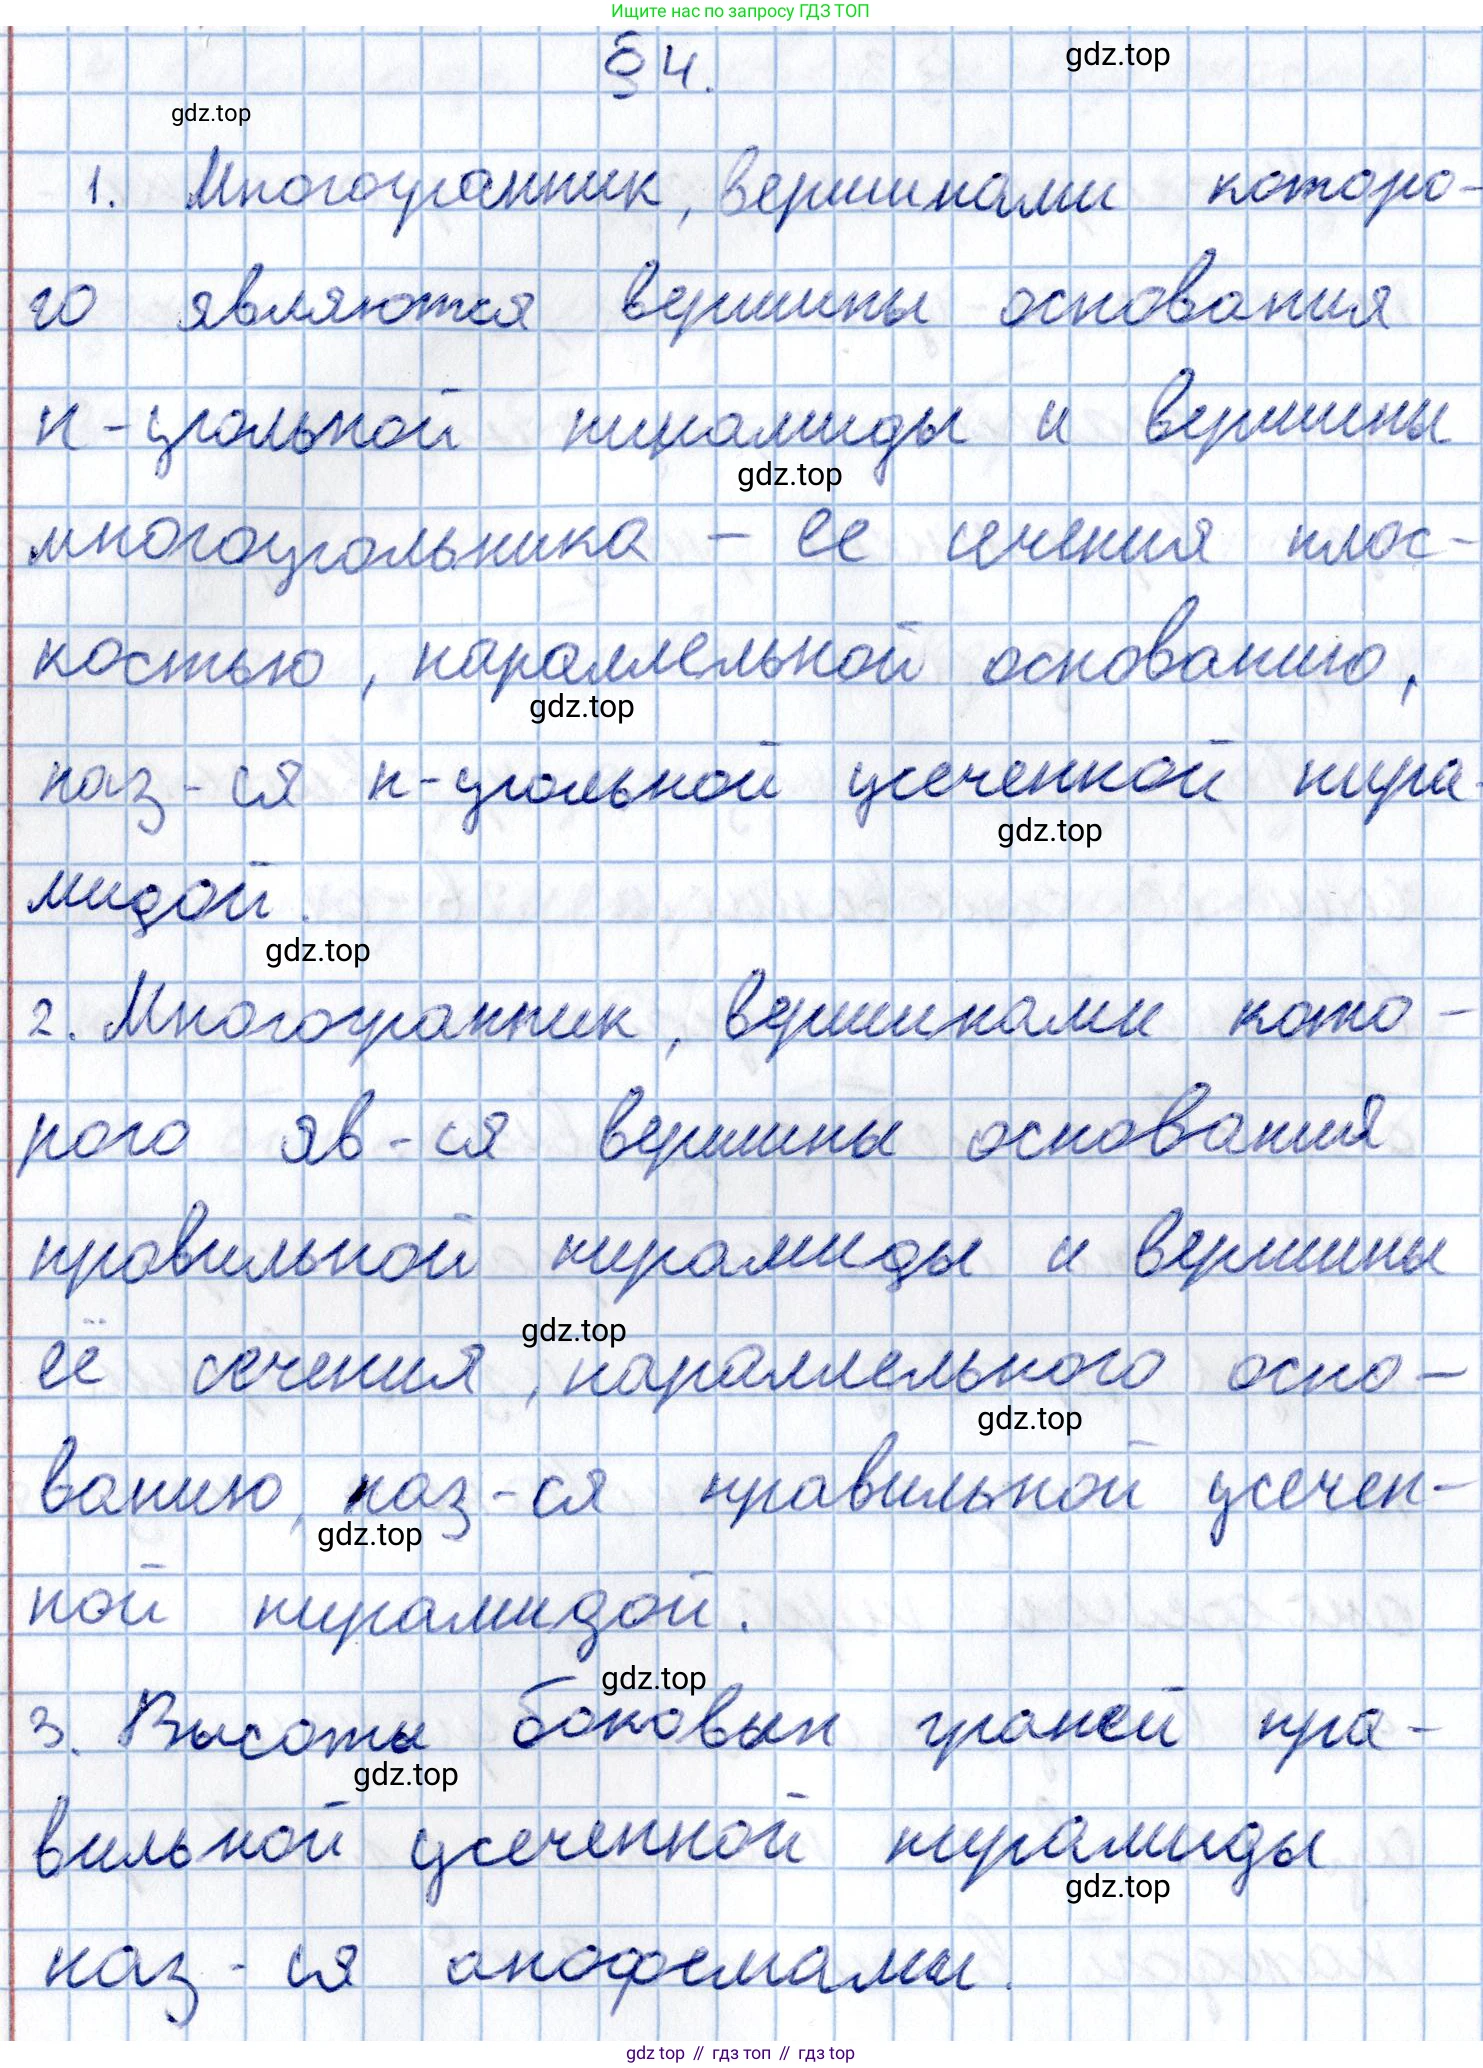 Ищите нас по запросу ГДЗ ТОП
§ 4.
gdz.top
gdz.top
1. Многогранник, вершинами которо-
го являются вершины основания
n-угольной пирамиды и вершины
gdz.top
многоугольника – ее сечения плос-
костью, параллельной основанию,
gdz.top
наз-ся n-угольной усеченной пира-
gdz.top
мидой.
gdz.top
2. Многогранник, вершинами кото-
рого яв-ся вершины основания
правильной пирамиды и вершины
gdz.top
её сечения, параллельного осно-
gdz.top
ванию, наз-ся правильной усечен-
gdz.top
ной пирамидой.
gdz.top
3. Высоты боковых граней пра-
gdz.top
вильной усеченной пирамиды
gdz.top
наз-ся апофемами.
gdz top // гдз топ // гдз top